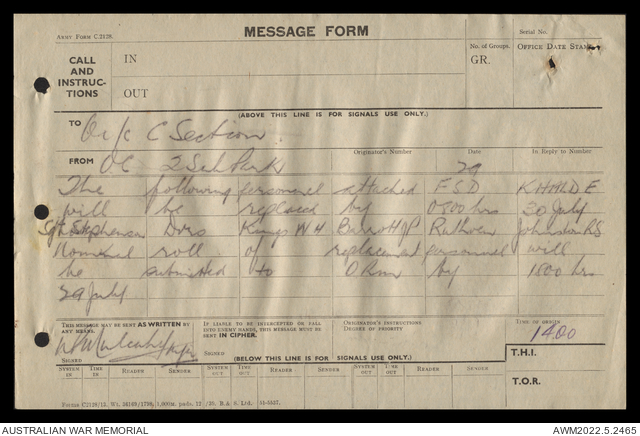 ARMY FORM C2128.
MESSAGE FORM
Serial No.
CALL AND INSTRUCTIONS
IN
OUT
No. of Groups.
GR.
OFFICE DATE STAMP
(ABOVE THIS LINE IS FOR SIGNALS USE ONLY.)
TO
C Section
FROM OC 2
Originator's Number
Date
29
In Reply to Number
The following personnel attached FSD KHALDE
will be replaced by 0800 hrs 30 July
Sgt Stephenson Dvrs Kings WH Ruthven Johnston RS
Nominal roll of replacement personnel will
be submitted to by 1800 hrs
29 July
THIS MESSAGE MAY BE SENT AS WRITTEN BY ANY MEANS.
SIGNED
IF LIABLE TO BE INTERCEPTED OR FALL INTO ENEMY HANDS, THIS MESSAGE MUST BE SENT IN CIPHER.
SIGNED
ORIGINATOR'S INSTRUCTIONS
DEGREE OF PRIORITY
TIME OF ORIGIN
1400
(BELOW THIS LINE IS FOR SIGNALS USE ONLY.)
T.H.I.
SYSTEM IN TIME IN READER SENDER SYSTEM OUT TIME OUT READER SENDER SYSTEM OUT TIME OUT READER SENDER
T.O.R.
AUSTRALIAN WAR MEMORIAL
AWM2022.5.2465